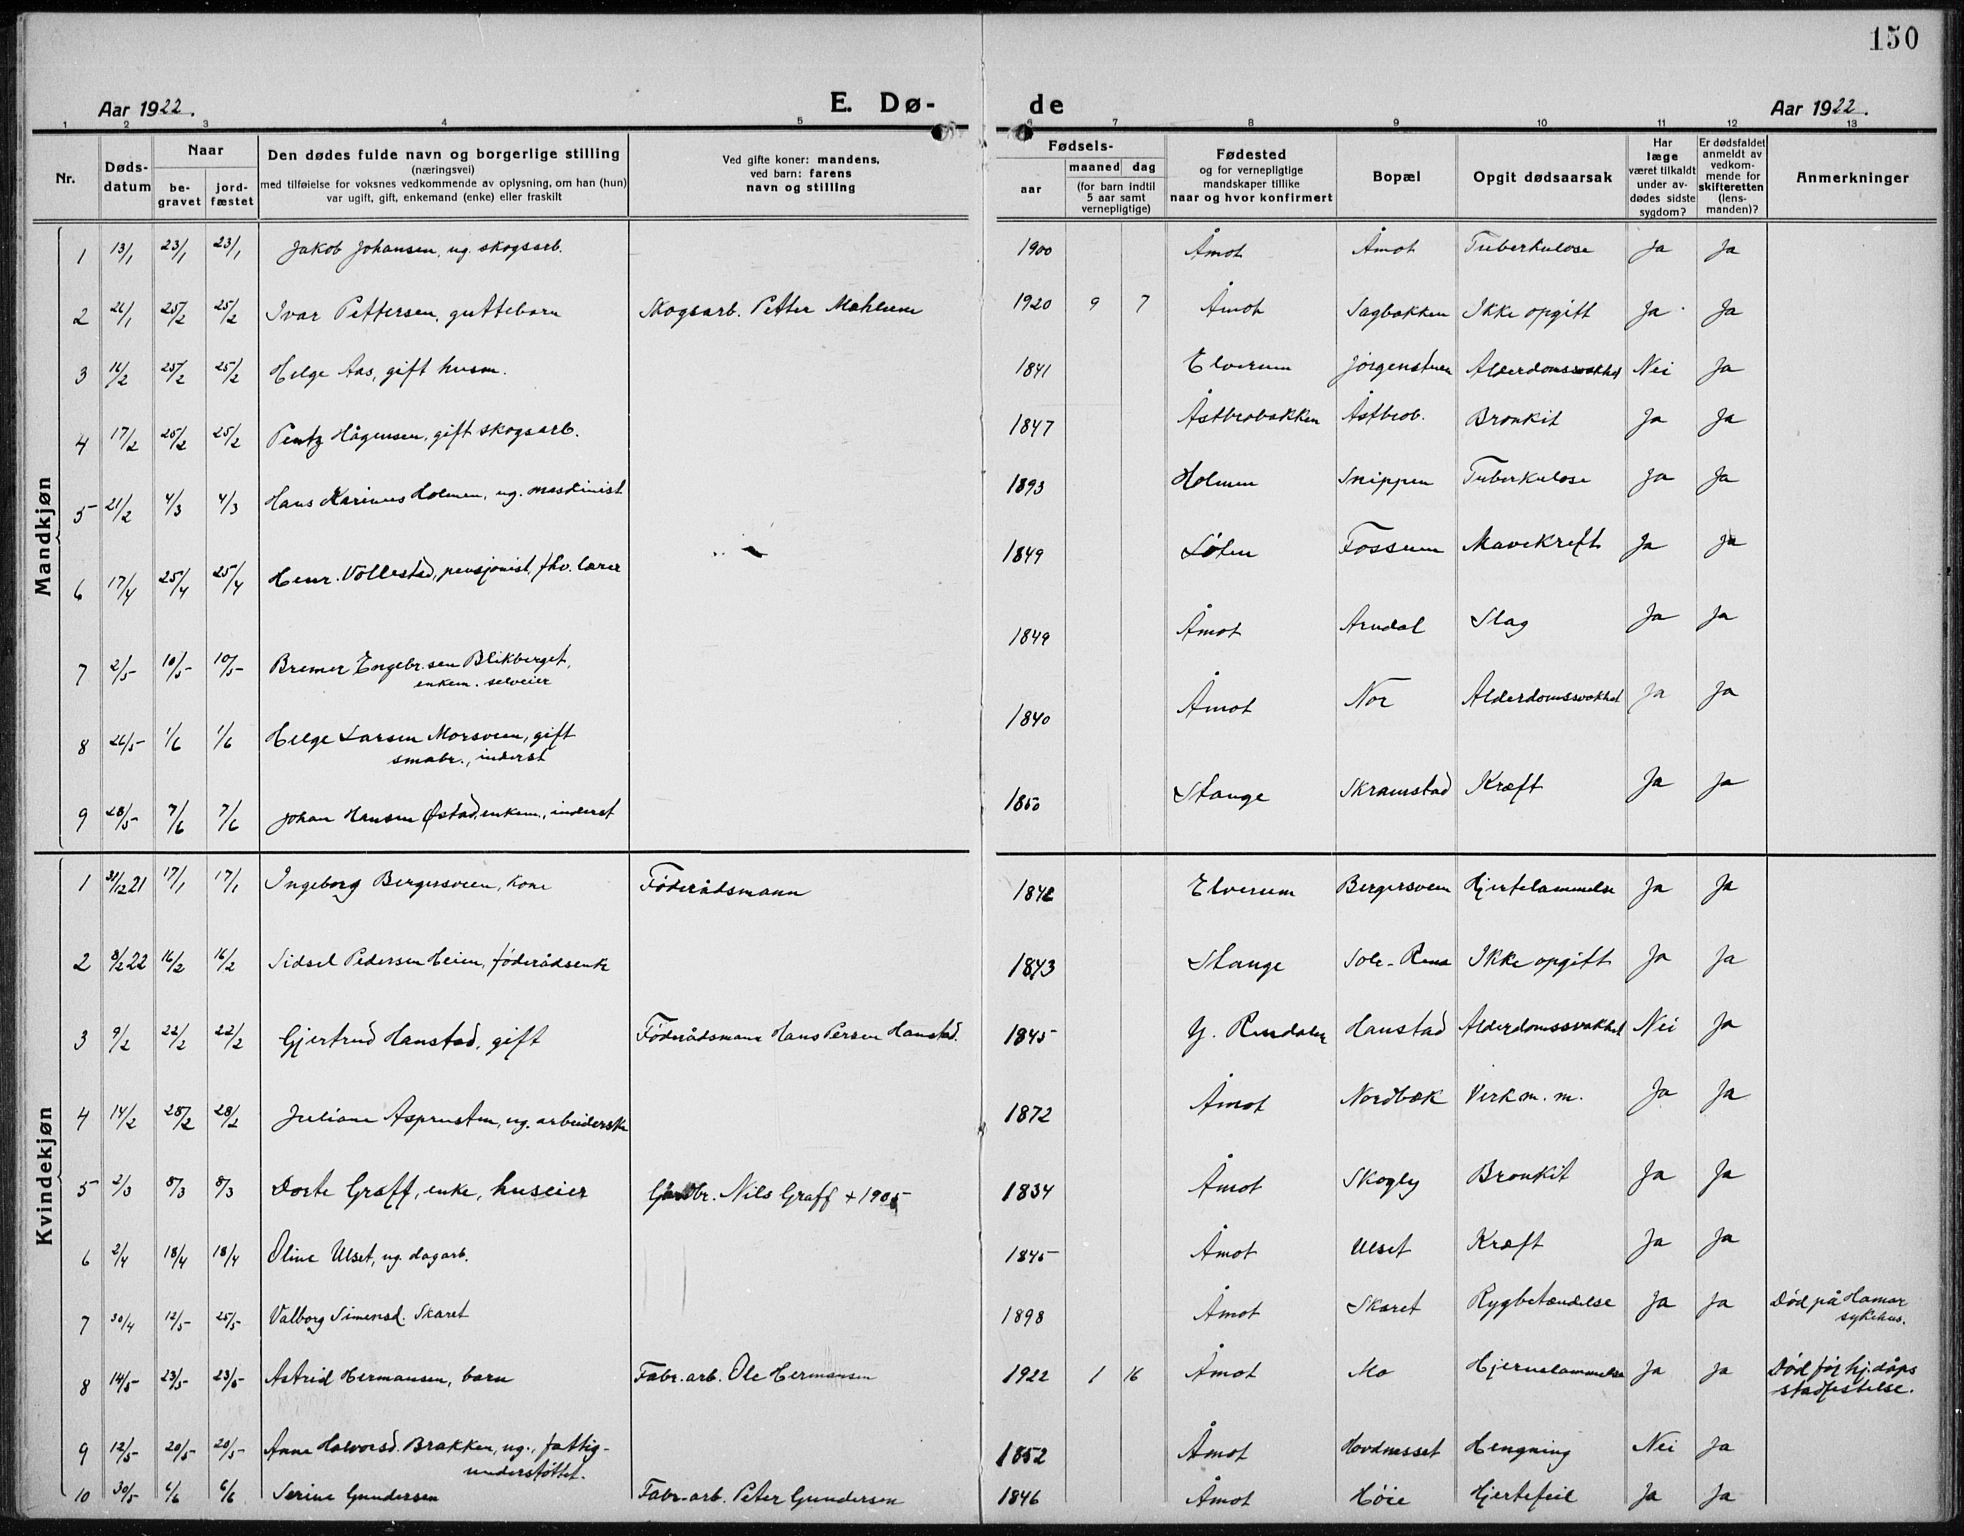 150
Aar 1922. E. Dø- de Aar 1922.
1 2 3 4 5 6 7 8 9 10 11 12 13
Nr. Døds-datum Naar be-gravet jord-fæstet Den dødes fulde navn og borgerlige stilling (næringsvei) med tilføielse for voksnes vedkommende av oplysning, om han (hun) var ugift, gift, enkemand (enke) eller fraskilt Ved gifte koner: mandens, ved barn: farens navn og stilling Fødsels- aar maaned dag (for barn indtil 5 aar samt vernepligtige) Fødested og for vernepligtige mandskaper tillike naar og hvor konfirmert Bopæl Opgit dødsaarsak Har læge været tilkaldt under av-dødes sidste sygdom? Er dødsfaldet anmeldt av vedkom-mende for skifteretten (lens-manden)? Anmerkninger
Mandkjøn
1 13/1 23/1 23/1 Jakob Johansen, ug. skogsarb. 1900 Åmot Åmot Tuberkulose Ja Ja
2 26/1 25/2 25/2 Ivar Pettersen, guttebarn Skogsarb. Petter Mæhlum 1920 9 7 Åmot Sagbakken Ikke opgitt Ja Ja
3 16/2 25/2 25/2 Helge Aas, gift husm. 1841 Elverum Jørgenstuen Alderdomssvakhet Nei Ja
4 17/2 25/2 25/2 Pentz Hågensen, gift skogsarb. 1847 Åstbrobakken Åstbrob. Bronkit Ja Ja
5 21/2 4/3 4/3 Hans Karinus Holmen, ug. maskinist 1893 Holmen Snippen Tuberkulose Ja Ja
6 17/4 25/4 25/4 Henr. Vollestad, pensjonist, fhv. lærer 1849 Løten Fossum Mavekreft Ja Ja
7 2/5 10/5 10/5 Bremer Engebr.sen Blikberget, enkem. selveier 1849 Åmot Arndal Slag Ja Ja
8 26/5 1/6 1/6 Helge Larsen Morsveen, gift småbr., inderst 1840 Åmot Nor Alderdomssvakhet Ja Ja
9 28/5 7/6 7/6 Johan Hansen Østad, enkem., inderst 1850 Stange Skramstad Kræft Ja Ja
Kvindekjøn
1 31/12 21 17/1 17/1 Ingeborg Bergersveen, kone Føderådsmann Elverum Bergersveen Hjertelammelse Ja Ja
2 8/2 22 16/2 16/2 Sidsel Pedersen Heien, føderådsenke 1843 Stange Sole-Rena Ikke opgitt Ja Ja
3 9/2 22/2 22/2 Gjertrud Hanstad, gift Føderådsmann Hans Persen Hanstad. 1845 Y. Rendalen Hanstad Alderdomssvakhet Nei Ja
4 14/2 28/2 28/2 Juliane Asprusten, ug. arbeiderske 1872 Åmot Nordbæk Verk m. m. Ja Ja
5 2/3 8/3 8/3 Dorte Græff, enke, huseier Gårdbr. Nils Græff + 1905 1834 Åmot Skogly Bronkit Ja Ja
6 2/4 18/4 18/4 Oline Ulset, ug. dagarb. 1845 Åmot Ulset Kræft Ja Ja
7 30/4 12/5 25/5 Valborg Simensd. Skaret 1898 Åmot Skaret Rygbetændelse Ja Ja Død på Hamar sykehus.
8 14/5 23/5 23/5 Astrid Hermansen, barn Fabr.-arb. Ole Hermansen 1922 1 16 Åmot Mo Hjernelammelse Ja Ja Død før hj.dåps stadfestelse.
9 12/5 20/5 20/5 Anne Halvorsd. Brakken, ug., fattig-understøttet. 1852 Åmot Hovdnesset Hengning Nei Ja
10 30/5 6/6 6/6 Serine Gundersen Fabr.-arb. Peter Gundersen 1846 Åmot Høie Hjertefeil Ja Ja